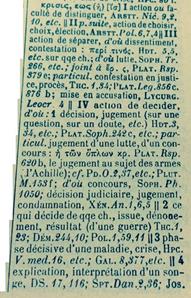 κρισις, εως (ἡ) [ῐ] action ou fa-
culté de distinguer, ARSTT. Nic. 9,9,
10, etc. || II p. suite, action de choisir,
choix, élection, ARSTT. Pol. 6,7,4 || III
action de séparer, d'où dissentiment,
contestation : περί τινός, HDT. 5,5,
etc. sur qqe ch., ou lutte, SOPH. Tr.
266, etc.; joint à ἔρις, PLAT. Rsp.
379 e; particul. contestation en justi-
ce, procès, THC. 1,34; PLAT. Leg. 856 c,
876 b; mise en accusation, LYCURG.
Leocr 4 || IV action de décider,
d'où : 1 décision, jugement (sur une
question, sur un doute, etc.) HDT. 3,
34, etc.; PLAT. Soph. 242 c, etc.; par-
ticul. jugement d'une lutte, d'un con-
cours : ἡ τῶν ὅπλων κρ. PLAT. Rsp.
620 b, le jugement au sujet des armes
d'Achille); cf. PD. O. 3,37, etc.; PLUT.
M. 153 f; d'où concours, SOPH. Ph.
1050; décision judiciaire, jugement,
condamnation, XÉN. An. 1,6,5 || 2 ce
qui décide de qqe ch., issue, dénoue-
ment, résultat (d'une guerre) THC. 1,
23; DÉM. 244,10; POL. 1,59,11 || 3 pha-
se décisive d'une maladie, crise, HPC.
V. med. 16, etc.; GAL. 8,377, etc. || 4
explication, interprétation d'un son-
ge, DS. 17,116; SPT. Dan. 2,36; JOS.